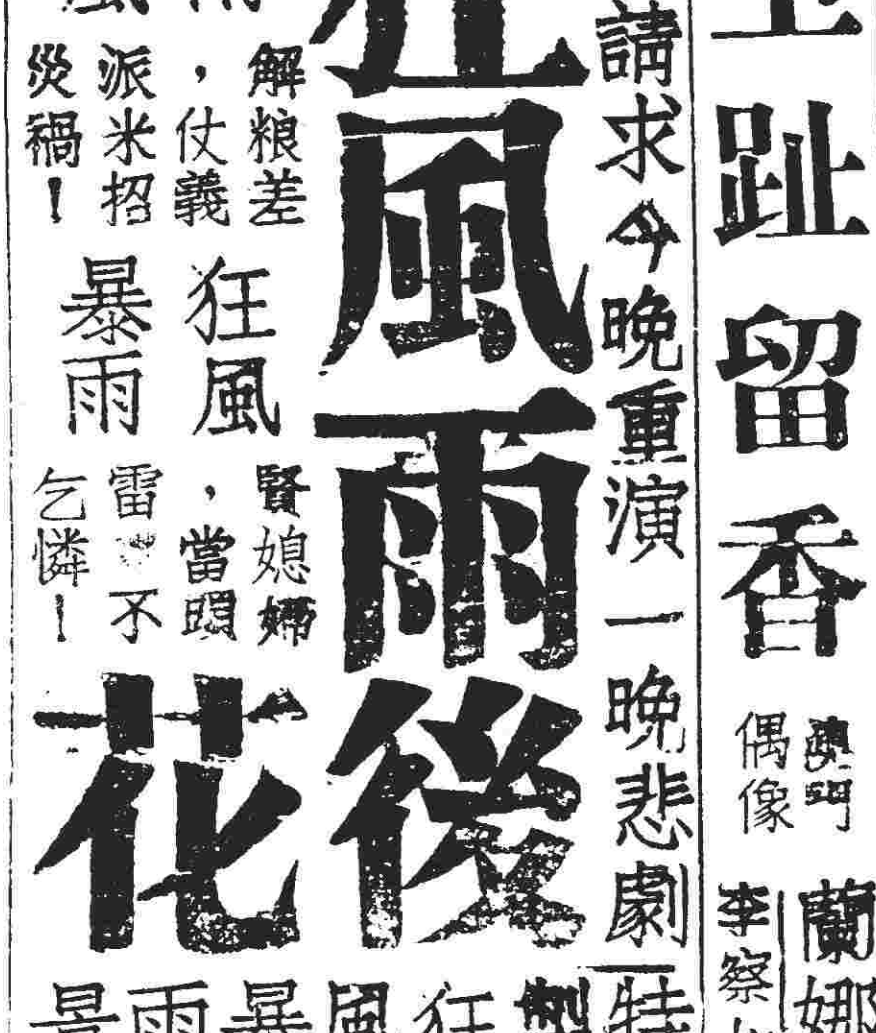 趾留香
澳門
偶像
蘭娜
李察
請求今晚重演一晚悲劇
狂風雨後
花
解粮差
，仗義
派米招
災禍！
狂風
暴雨
賢媳婦
，當眼
雷 不
乞憐！